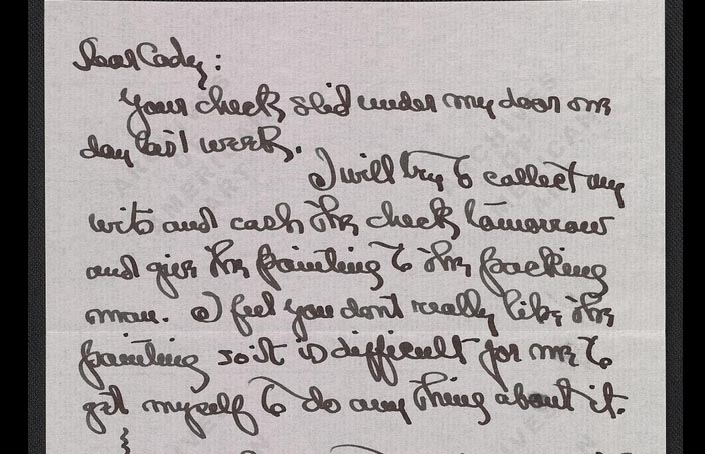 Dear Cady:
Your check slid under my door one
day last week.
I will try to collect my
wits and cash the check tomorrow
and give the painting to the packing
man. I feel you dont really like the
painting so it is difficult for me to
get myself to do any thing about it.